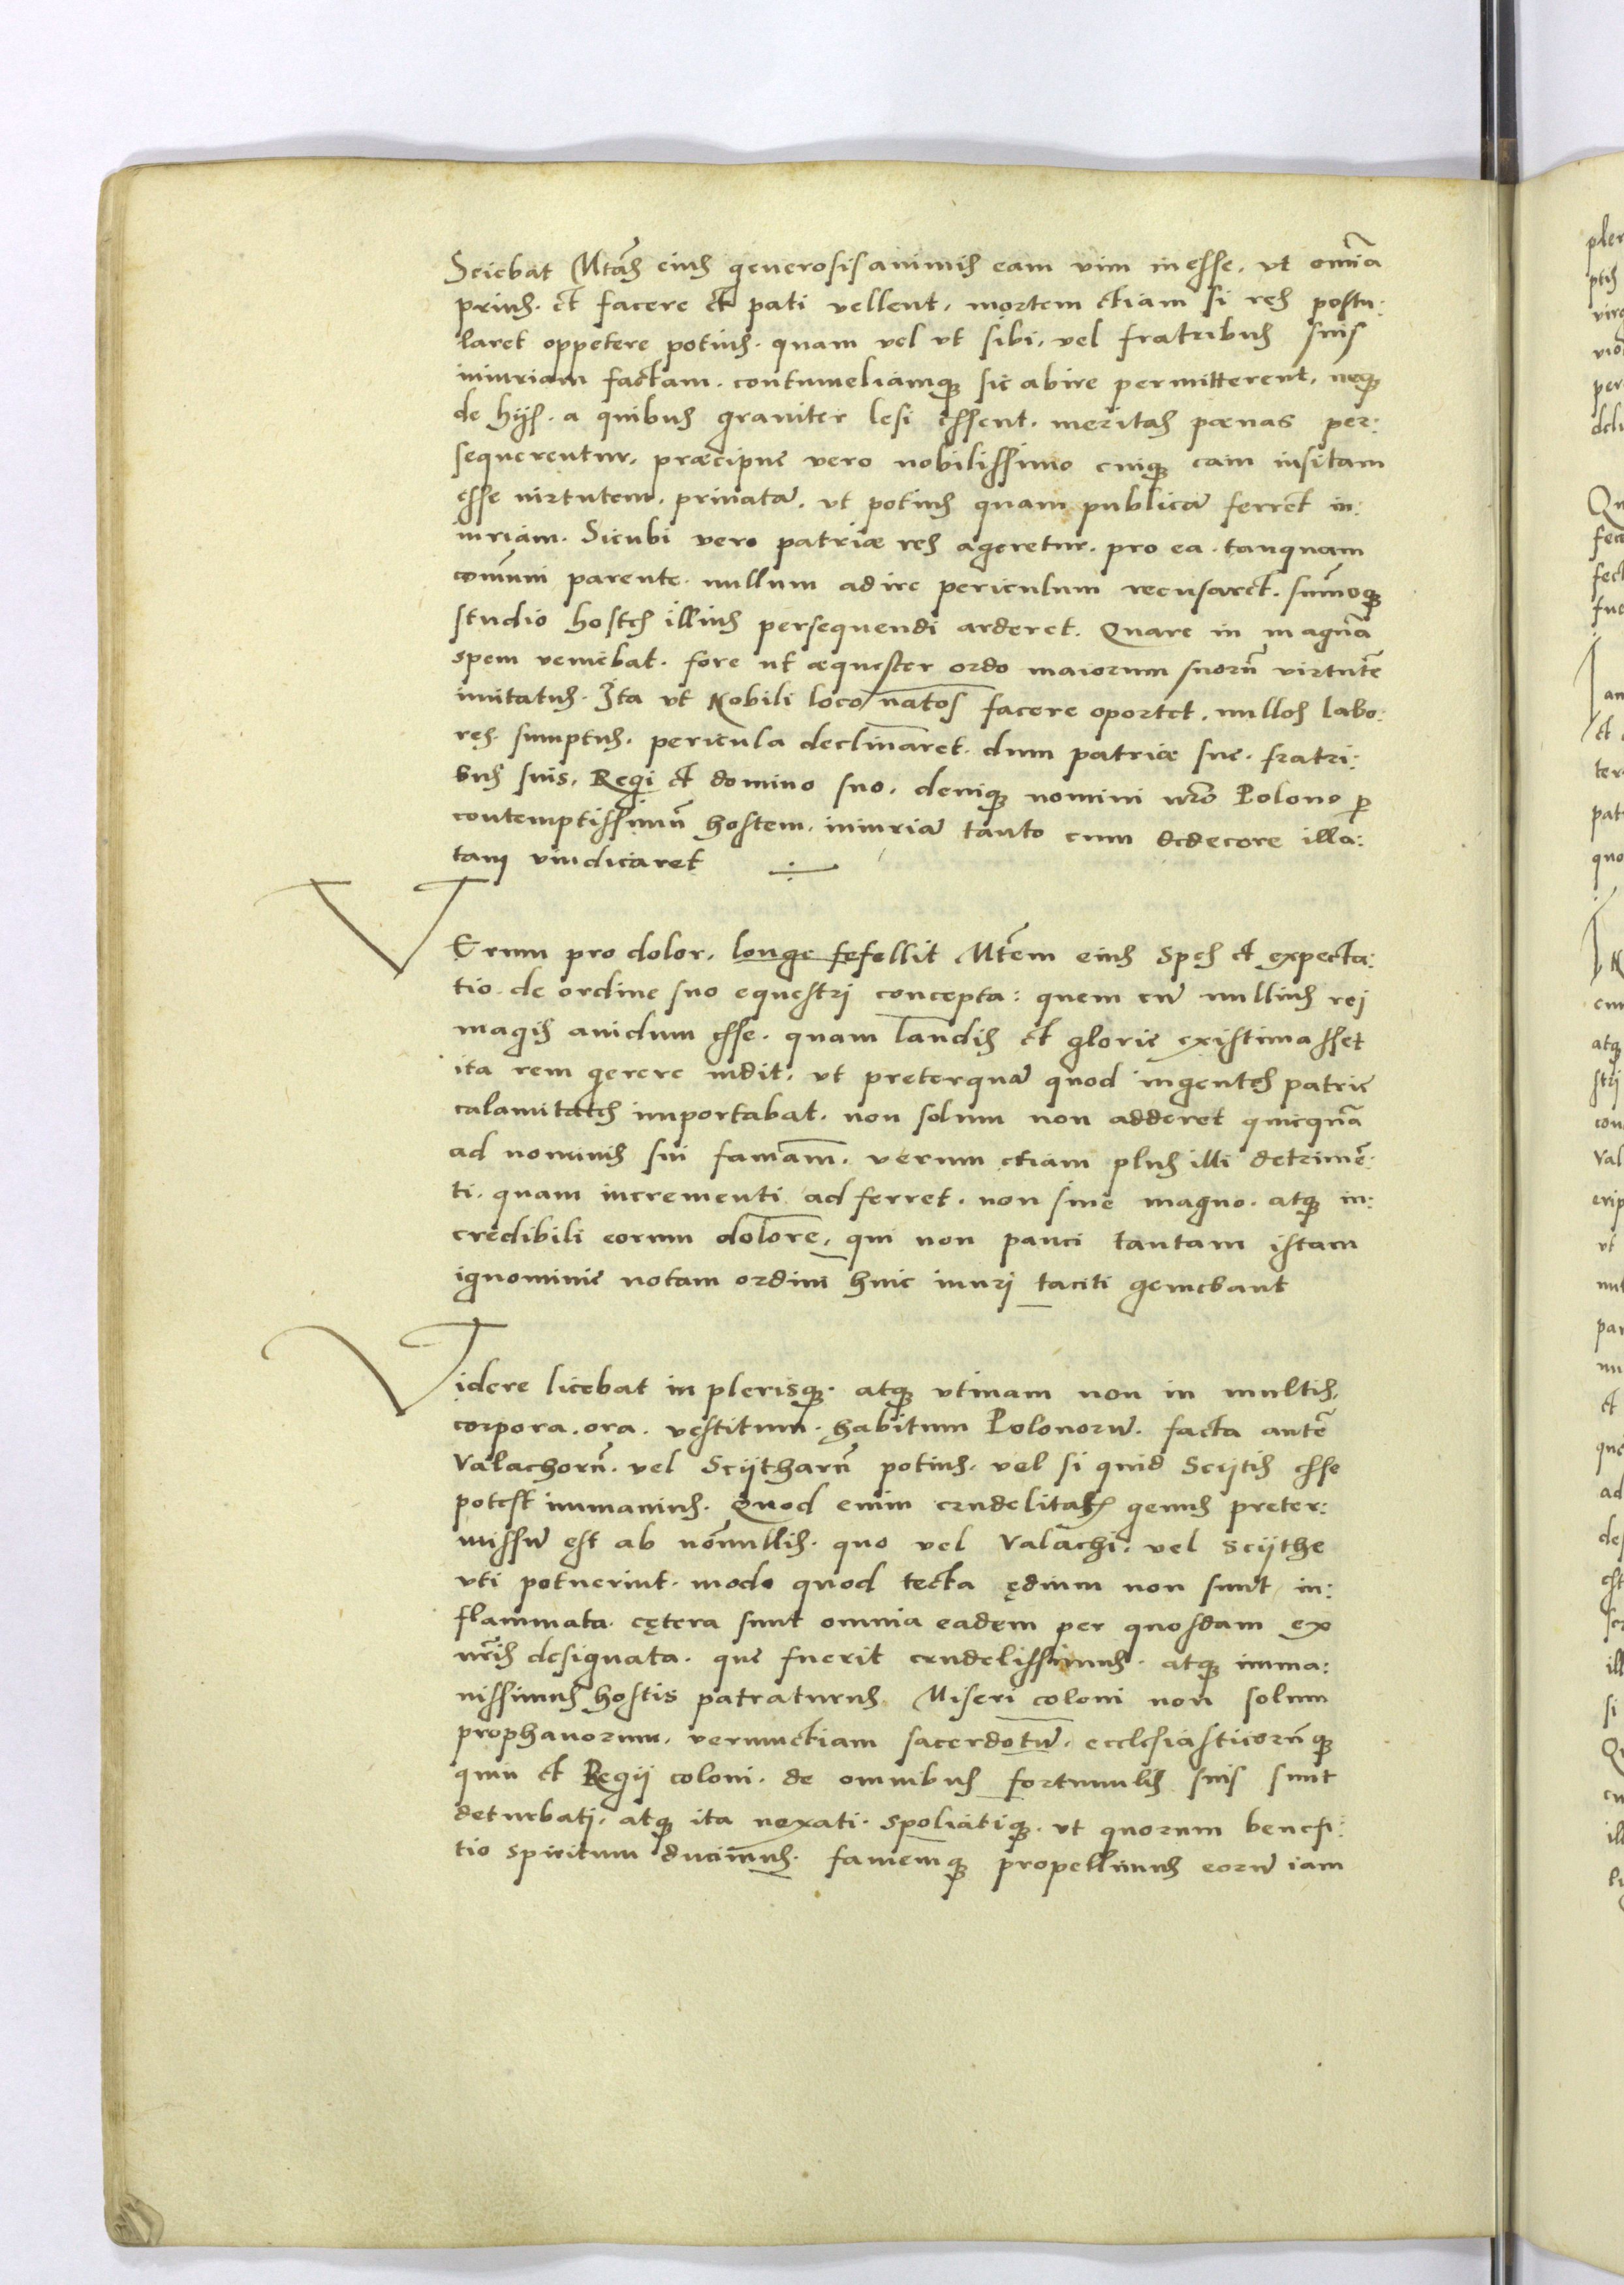 Sciebat Mtas eius generosis animis eam vim inesse, vt omia
prius. et facere et pati vellent, mortem etiam si res postu:
laret oppetere potius. quam vel vt sibi, vel fratribus suis
iniuriam factam. contumeliamq; sic abire permitterent, neq;
de hijs. a quibus grauiter lesi essent. meritas pænas per:
sequerentur, præcipue vero nobilissimo cuiq; eam insitam
esse uirtutem, priuatã, vt potius quam publicã ferret in:
iuriam. Sicubi vero patriæ res ageretur. pro ea. tanquam
comuni parente. nullum adire periculum recusaret. sumoq;
studio hostes illius persequendi arderet. Quare in magnã
spem veniebat. fore ut æquester ordo maiorum suorũ virtutẽ
imitatus. Ita vt Nobili loco natos facere oportet, nullos labo:
res. sumptus, pericula declinaret. dum patriæ sue. fratri:
bus suis, Regi et domino suo, deniq; nomini nro Polono p
contemptissimũ hostem, iniuriã tanto cum dedecore illa:
tam vindicaret ÷
VErum pro dolor, longe fefellit Mtem eius spes et expecta:
tio. de ordine suo equestri concepta: quem cũ nullius rei
magis auidum esse. quam laudis et glorie existimasset
ita rem gerere uidit, vt preterquã quod ingentes patrie
calamitates importabat. non solum non adderet quicquã
ad nominis sui famam. verum etiam plus illi detrimẽ:
ti. quam incrementi adferret. non sine magno. atq; in:
credibili eorum dolore, qui non pauci tantam istam
ignominie notam ordini huic inuri taciti gemebant
Videre licebat in plerisq;. atq; vtinam non in multis,
corpora. ora. vestitum. habitum Polonorũ. facta autẽ
Valachorũ. vel Scijtharũ potius. vel si quid Scijtis esse
potest inmanius. Quod enim crudelitatis genus preter:
missũ est ab nõnullis. quo vel Valachi, vel Scijthe
vti potuerint. modo quod tecta ędium non sunt in:
flammata. cętera sunt omnia eadem per quosdam ex
nris designata. que fuerit crudelissimus. atq; imma:
nissimus hostis patraturus. Miseri coloni non solum
prophanorum, verumetiam sacerdotũ, ecclesiasticorũq;
quin et Regij coloni. de omnibus fortunulis suis sunt
deturbati, atq; ita uexati. spoliatiq;. vt quorum benefi:
tio spiritum ducimus. famemq; propellimus eorũ iam